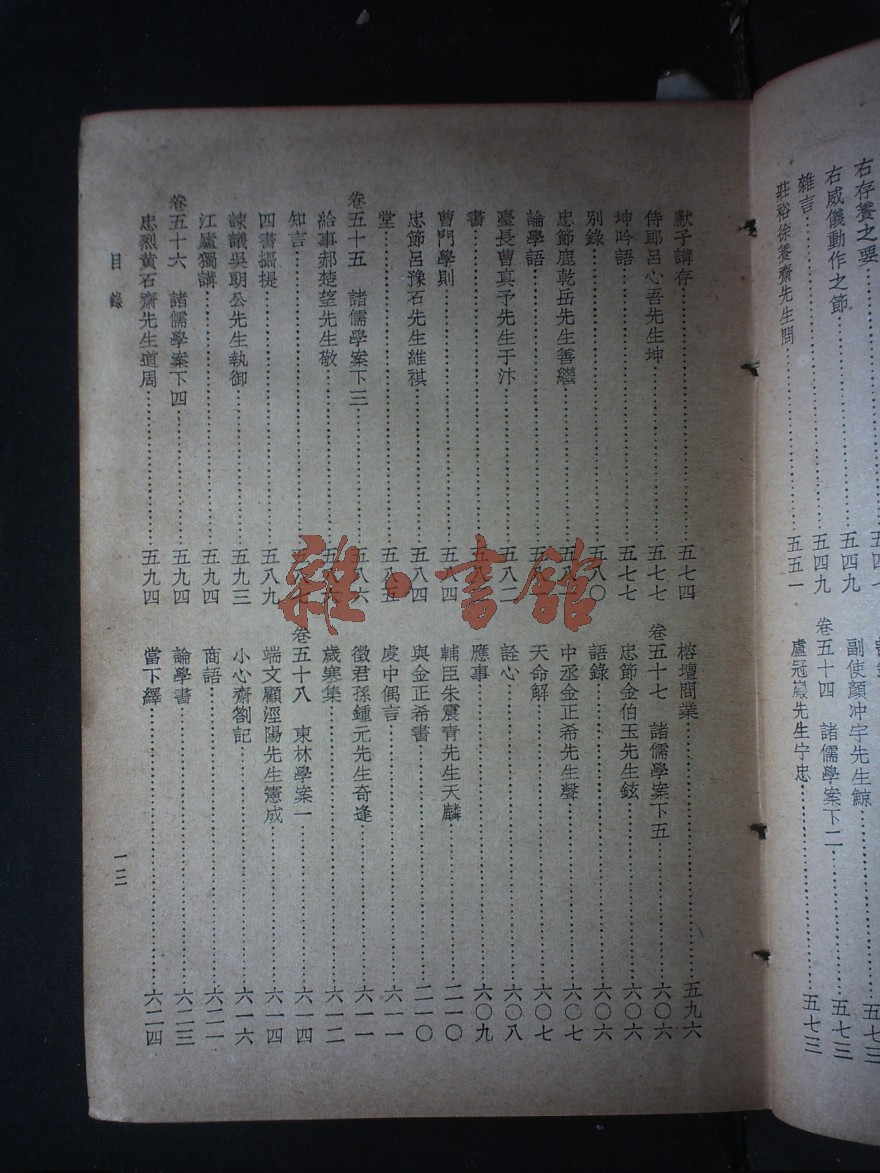 右存養之要
右威儀動作之節……五四九
雜言……五四九
莊裕徐養齋先生問……五五一
副使顏冲宇先生鯨……五七三
卷五十四 諸儒學案下二
盧冠巖先生宁忠……五七三
默子講存……五七四
侍郎呂心吾先生坤……五七七
坤吟語……五七七
別錄……五八〇
忠節鹿乾岳先生善繼……五八
論學語……五八
臺長曹真予先生于汴……五八二
書……五八
曹門學則……五八四
忠節呂豫石先生維祺……五八四
堂……五八五
卷五十五 諸儒學案下三……五八六
給事郝楚望先生敬……五八六
知言……五八七
四書攝提……五八九
諫議吳朗公先生執御……五九三
江廬獨講……五九四
卷五十六 諸儒學案下四……五九四
忠烈黃石齋先生道周……五九四
榕壇問業……五九六
卷五十七 諸儒學案下五……六〇六
忠節金伯玉先生鉉……六〇六
語錄……六〇六
中丞金正希先生聲……六〇七
天命解……六〇七
詮心……六〇八
應事……六〇九
輔臣朱震青先生天麟……二一〇
與金正希書……二一〇
虔中偶言……六一一
徵君孫鍾元先生奇逢……六一一
歲寒集……六一二
卷五十八 東林學案一……六一四
端文顧涇陽先生憲成……六一四
小心齋劄記……六一六
商語……六二一
論學書……六二三
當下繹……六二四
目錄
一三
雜·書館